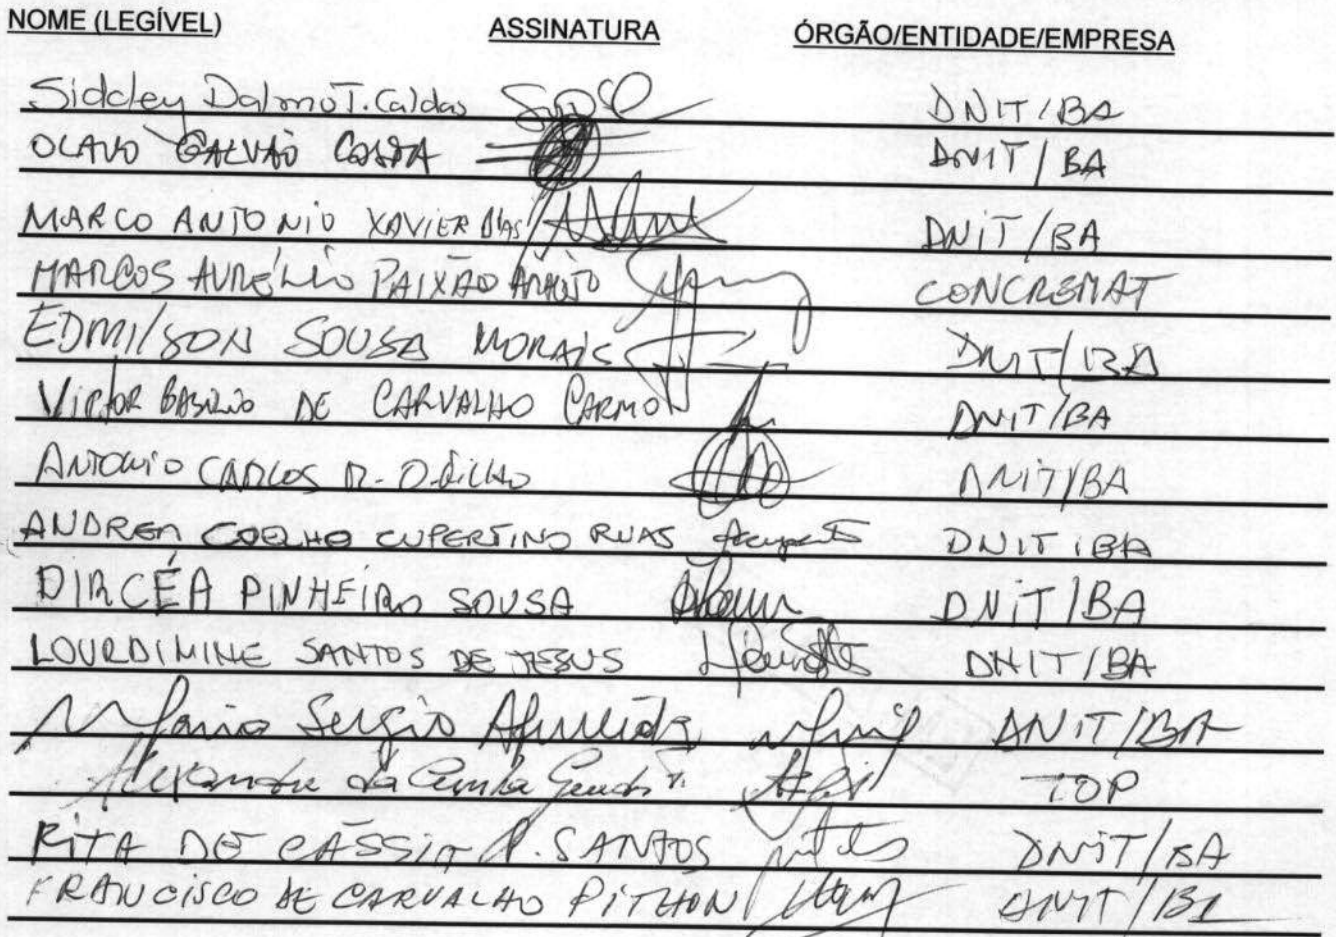 NOME (LEGÍVEL) ASSINATURA ÓRGÃO/ENTIDADE/EMPRESA
Siddley Dalmo T. Caldas DNIT/BA
OLAVO GALVÃO COSTA DNIT/BA
MARCO ANTONIO XAVIER DIAS DNIT/BA
MARCOS AURÉLIO PAIXÃO ARAÚJO CONCREMAT
EDMILSON SOUSA MORAIS DNIT/BA
Victor BASILIO DE CARVALHO CARMO DNIT/BA
ANTONIO CARLOS DNIT/BA
ANDREA COELHO CUPERTINO RUAS DNIT/BA
DIRCÉA PINHEIRO SOUSA DNIT/BA
LOURDIMINE SANTOS DE JESUS DNIT/BA
Sergio Almeida DNIT/BA
Alexandre da Cunha TOP
RITA DE CÁSSIA P. SANTOS DNIT/BA
FRANCISCO DE CARVALHO PITHON DNIT/BA